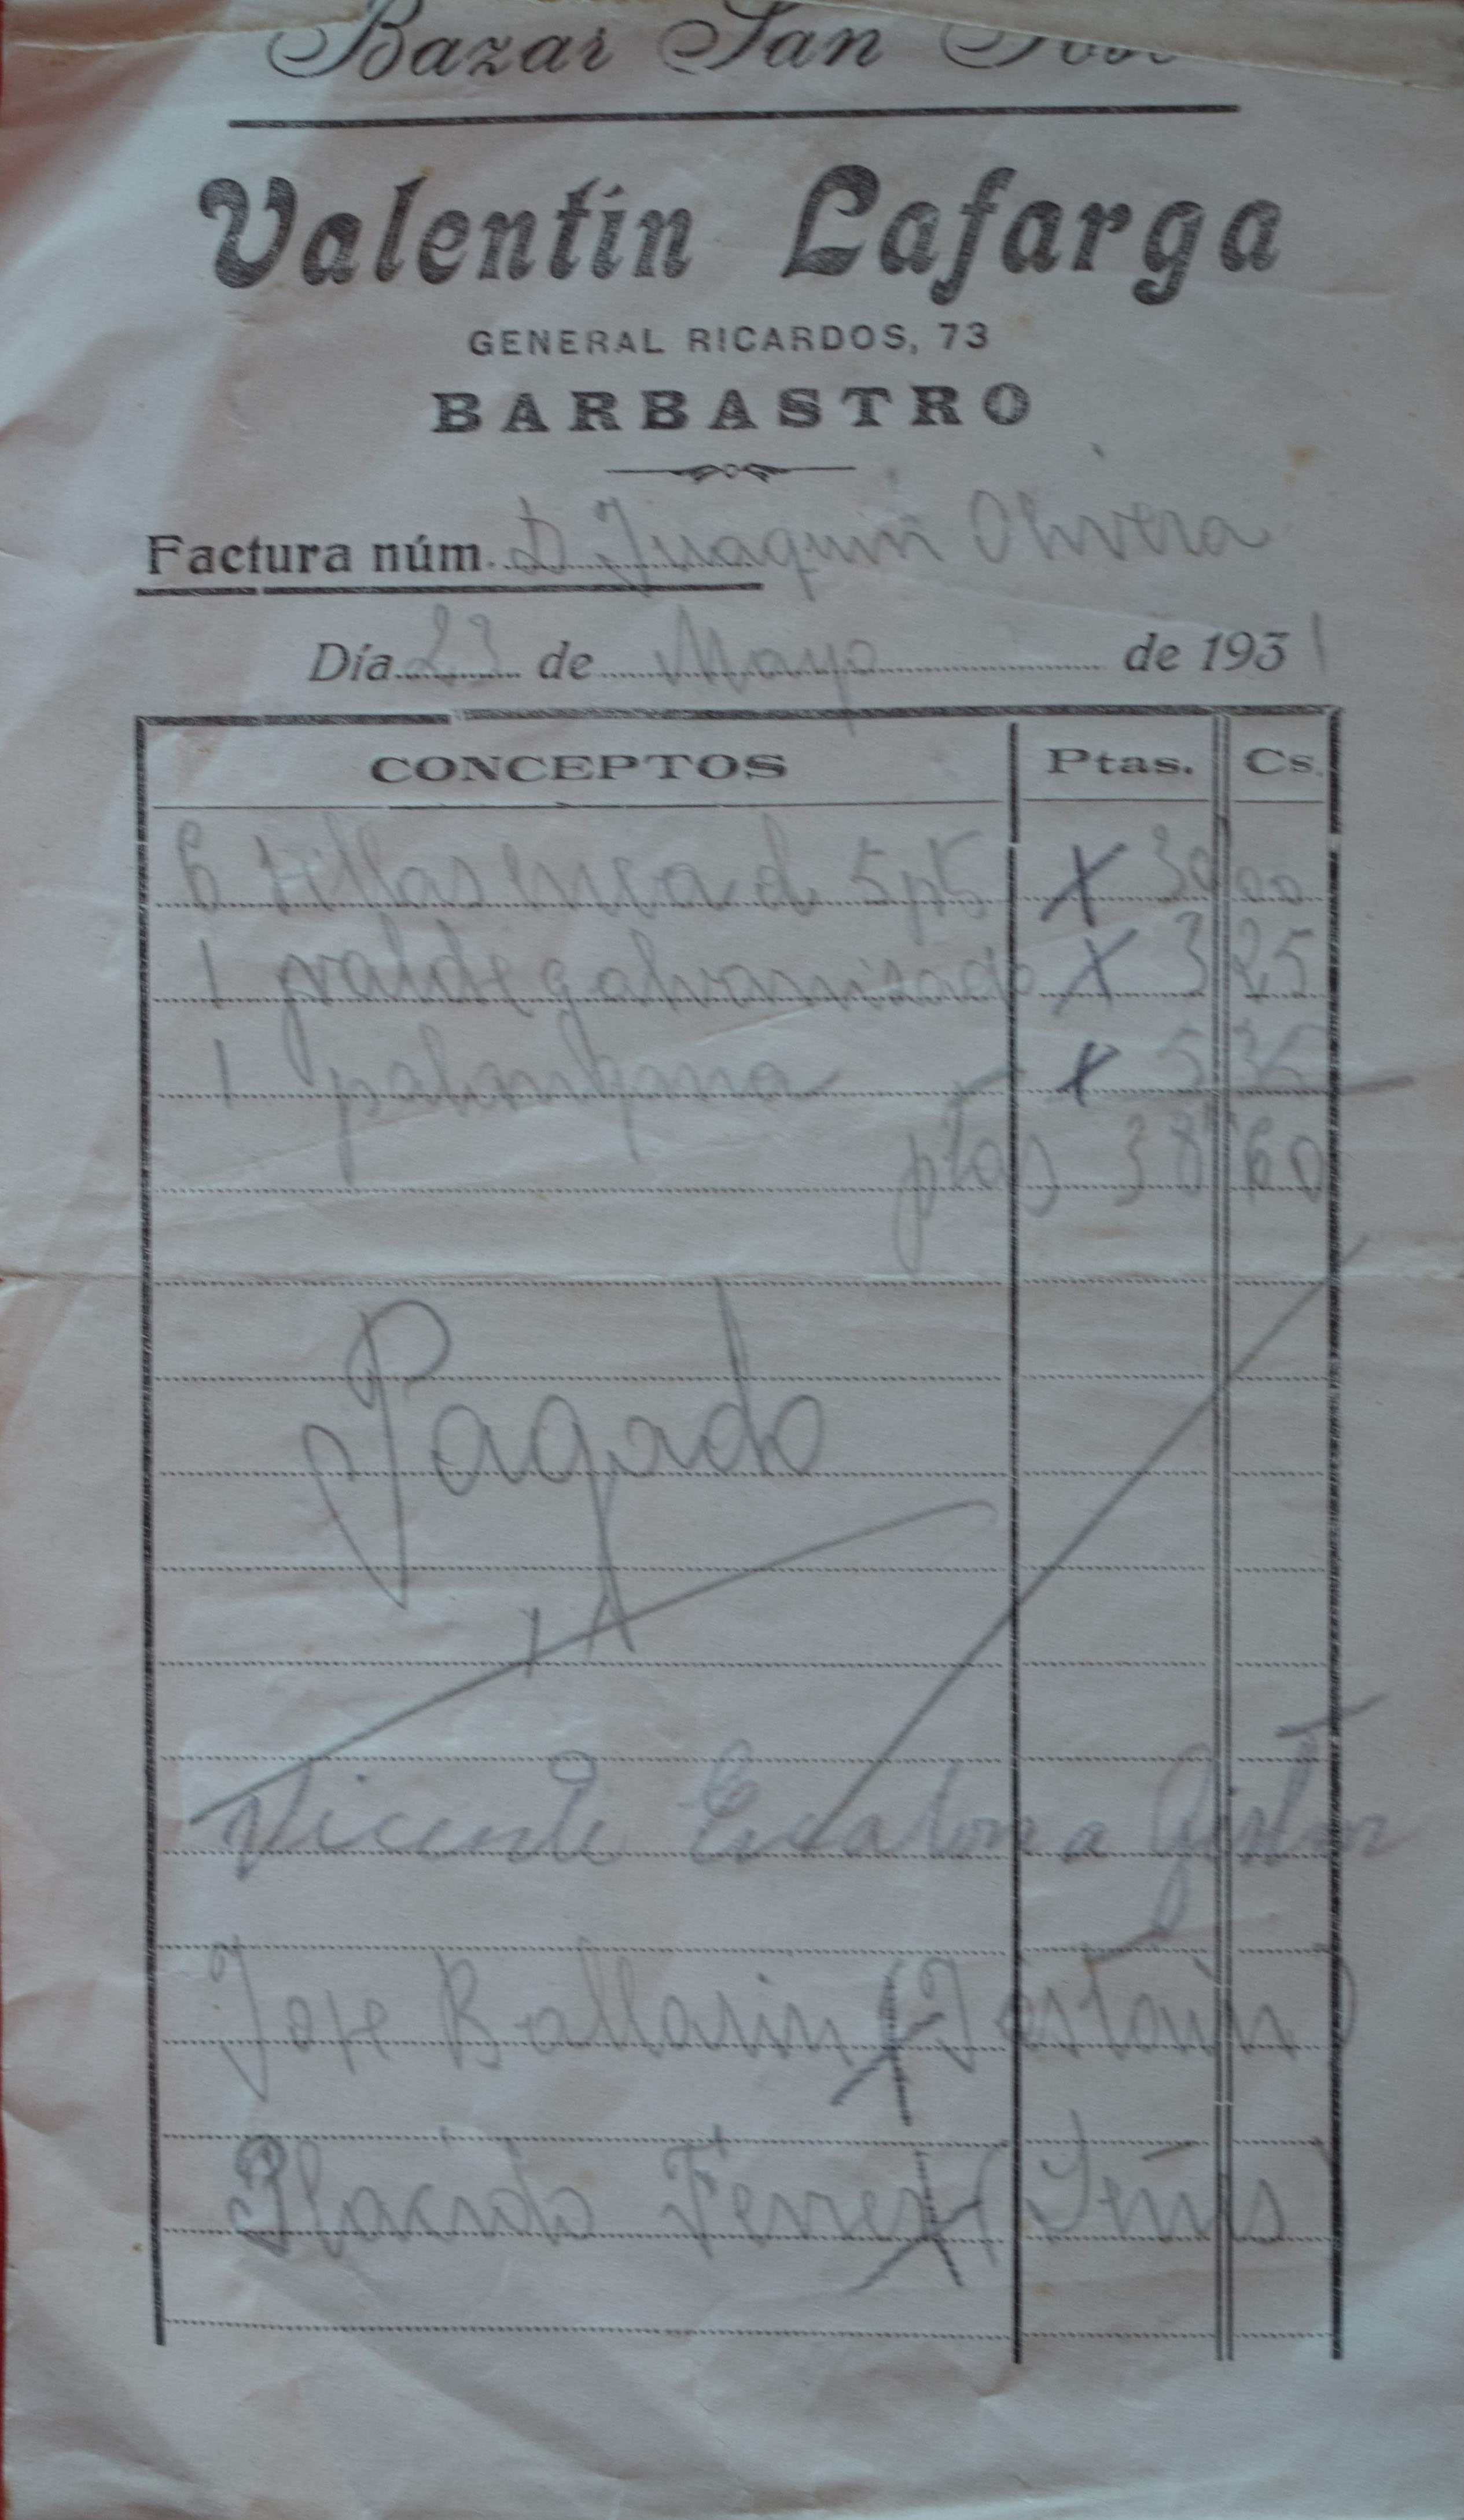 Bazar San José
Valentín Lafarga
GENERAL RICARDOS, 73
BARBASTRO
Factura núm. D. Juaquin Olivera
Día 23 de Mayo de 1931
CONCEPTOS Ptas. Cs.
6 sillas a 5 pts X 30 00
1 valde galvanisado X 3 25
1 palangana X 5 35
ptas 38 60
Pagado
Vicente Escalona
Jose Ballarin
Placido Ferrer